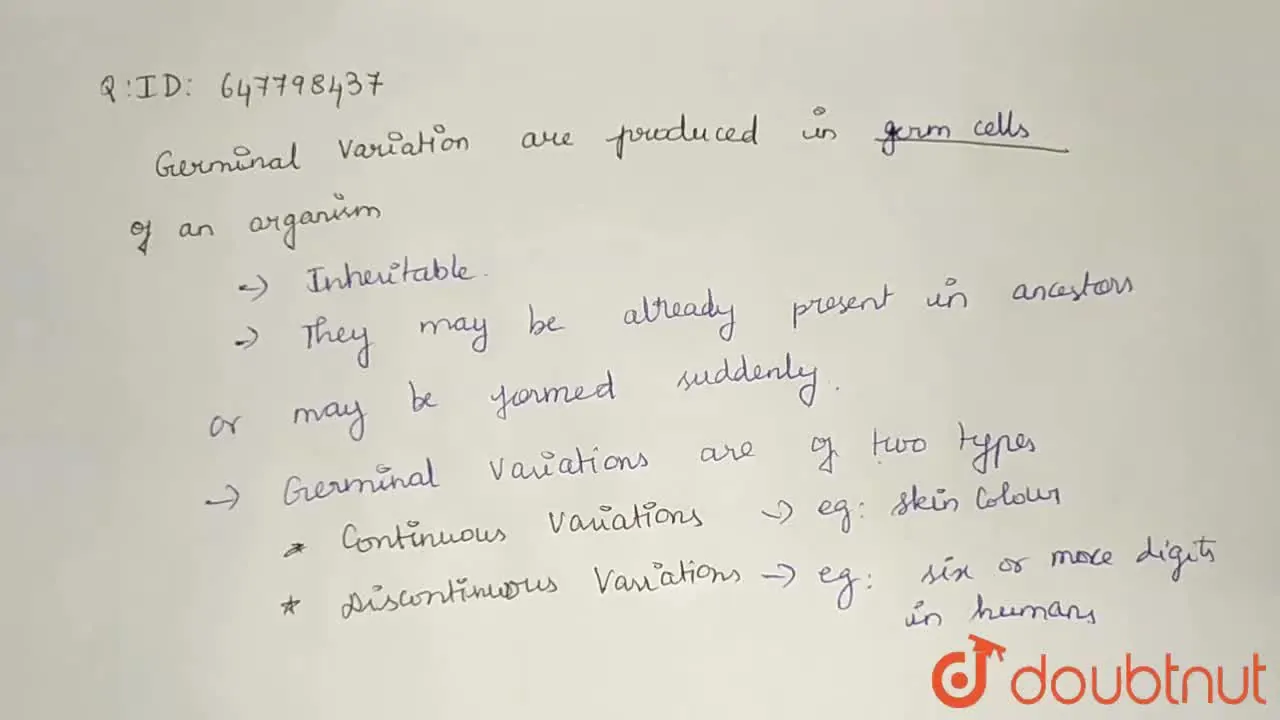 Q:ID: 647798437
Germinal Variation are produced in germ cells
of an organism
→ Inheritable.
→ They may be already present in ancestors
or may be formed suddenly.
→ Germinal Variations are of two types
* Continuous Variations → eg: Skin Colour
* Discontinuous Variations → eg: six or more digits
in humans
doubtnut